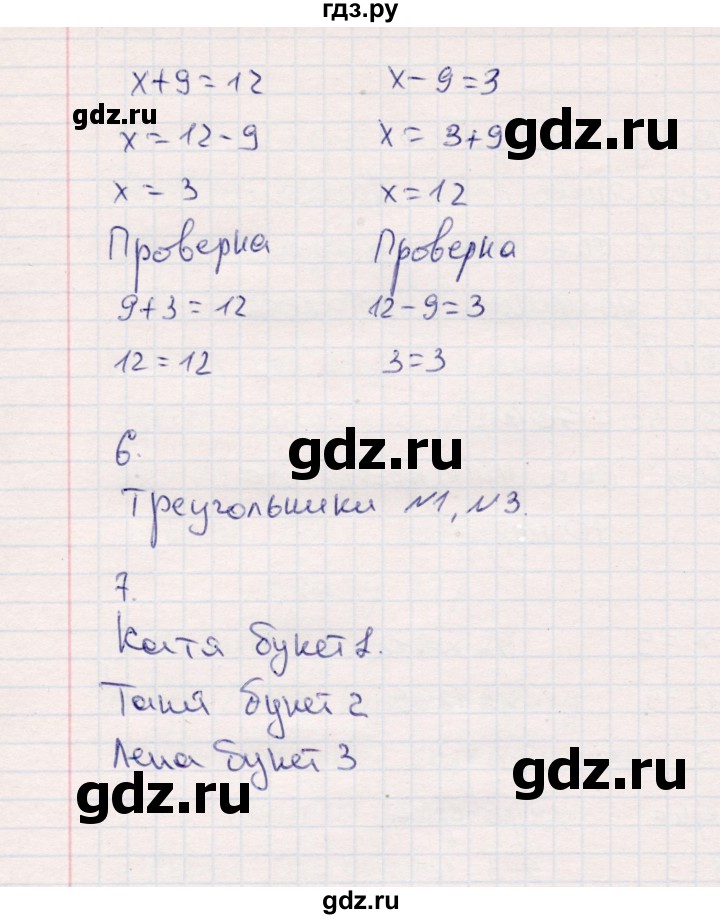 гдз.ру
x+9=12
x-9=3
gdz.ru
x=12-9
x=3+9
gdz.ru
x=3
x=12
Проверка
Проверка
9+3=12
12-9=3
12=12
3=3
6.
gdz.ru
Треугольники №1, №3.
7.
Катя букет 1.
Таня букет 2
Лена букет 3
gdz.ru
gdz.ru
gdz.ru